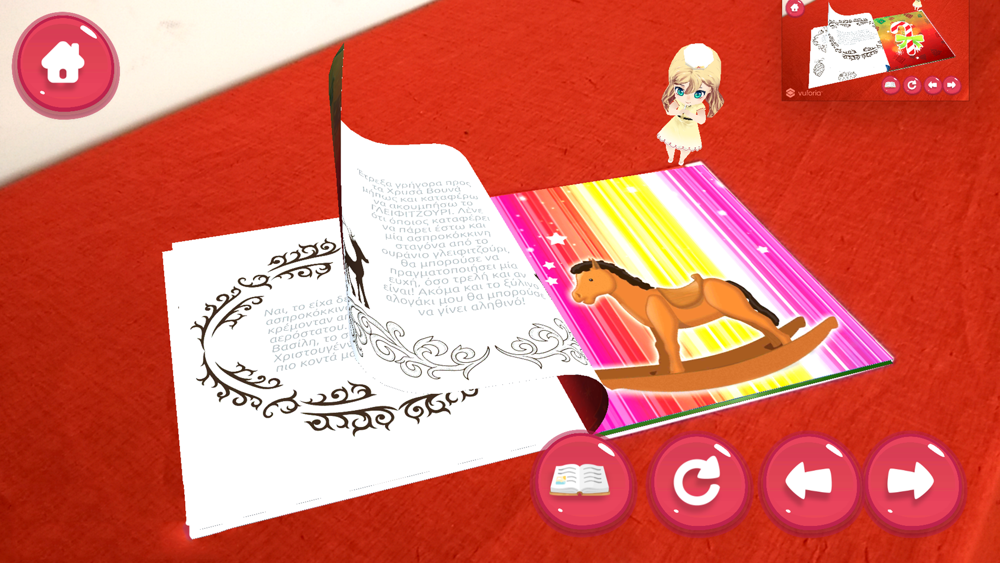 Ναι, το είχα δε
ασπροκόκκιν
κρέμονταν απ
αερόστατο
Βασίλη, το σ
Χριστουγένν
πιο κοντά μο
Έτρεξα γρήγορα προς
τα Χρυσά Βουνά
μήπως και καταφέρω
να ακουμπήσω το
ΓΛΕΙΦΙΤΖΟΥΡΙ. Λένε
ότι όποιος καταφέρει
να πάρει έστω και
μία ασπροκόκκινη
σταγόνα από το
ουράνιο γλειφιτζούρι,
θα μπορούσε να
πραγματοποιήσει μία
ευχή, όσο τρελή και αν
είναι! Ακόμα και το ξύλινο
αλογάκι μου θα μπορούσε
να γίνει αληθινό!
vuforia